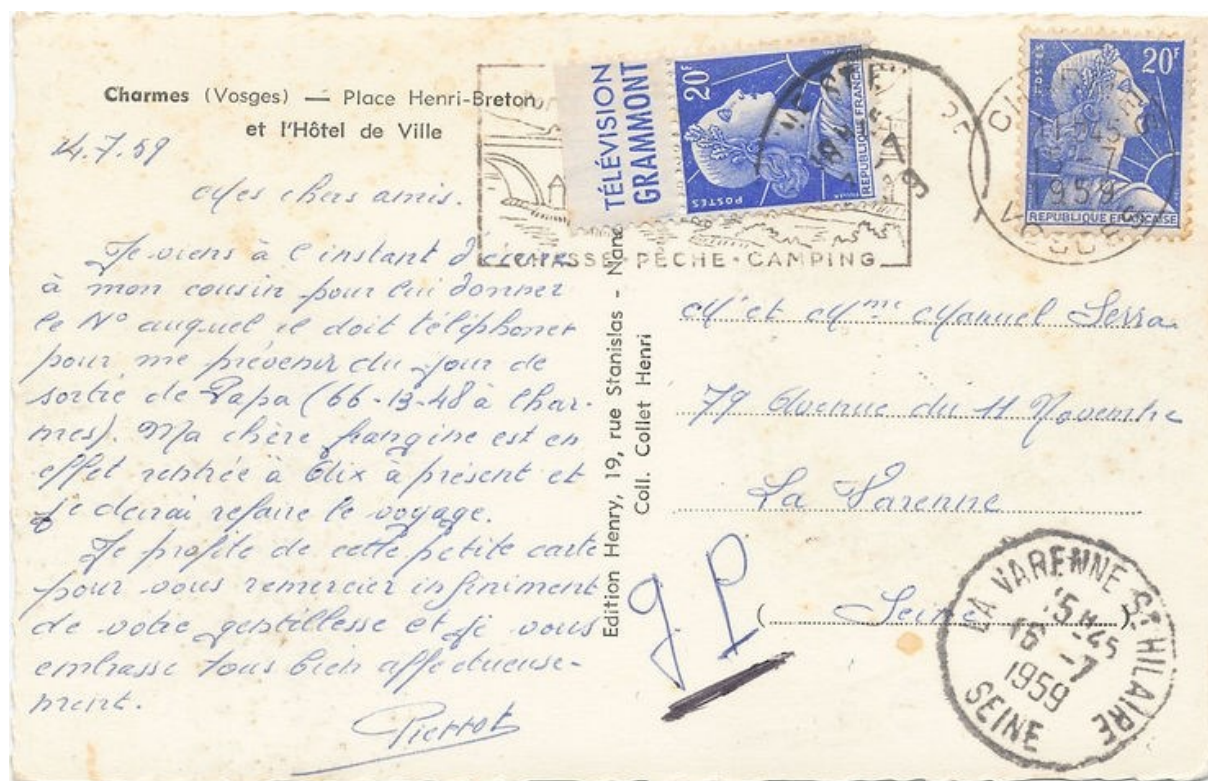 Charmes (Vosges) — Place Henri-Breton
et l'Hôtel de Ville
14.7.59
Mes chers amis.
Je viens à l'instant d'écrire
à mon cousin pour lui donner
le N° auquel il doit téléphoner
pour me prévenir du jour de
sortie de Papa (66-13-48 à Char-
mes). Ma chère frangine est en
effet rentrée à Aix à présent et
je devrai refaire le voyage.
Je profite de cette petite carte
pour vous remercier infiniment
de votre gentillesse et je vous
embrasse tous bien affectueuse-
ment.
Pierrot
Edition Henry, 19, rue Stanislas - Nanc
Coll. Collet Henri
TÉLÉVISION
GRAMMONT
20F
POSTES
REPUBLIQUE FRANÇAISE
CHASSE-PÊCHE-CAMPING
POSTES
20F
REPUBLIQUE FRANÇAISE
1959
VOSGES
Mr et Mme Manuel Serra
79 Avenue du 11 Novembre
La Varenne
(Seine)
J.P.
LA VARENNE ST HILAIRE
15H45
16-7
1959
SEINE